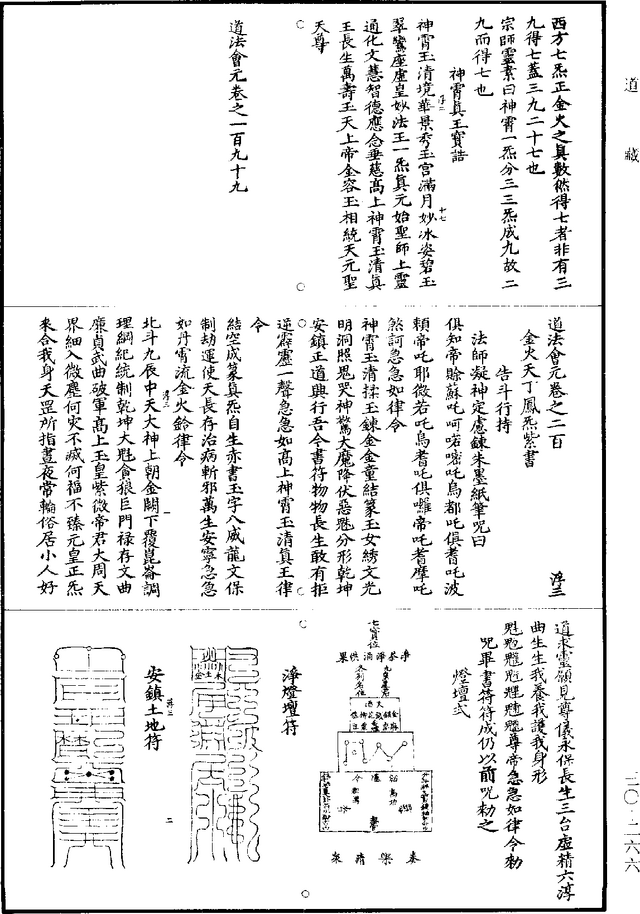 道藏
三〇·二六六
西方七炁正金火之真數然得七者非有三
九得七蓋三九二十七也
宗師靈素曰神霄一炁分三三炁成九故二
九而得七也
神霄真王寶誥
神霄玉清境華景秀玉宮滿月妙冰姿碧玉
翠鸞座虛皇妙法王一炁真元始聖師上靈
通化文慧智德應念垂慈高上神霄玉清真
王長生萬壽玉天上帝金容玉相統天元聖
天尊
道法會元卷之一百九十九
道法會元卷之二百
浮三
金火天丁鳳炁紫書
告斗行持
法師凝神定慮鍊朱墨紙筆呪曰
俱知帝賒蘇吒呵喏嘧吒烏都吒俱耆吒波
頼帝吒耶微若吒烏耆吒俱囉帝吒耆摩吒
煞訶急急如律令
神霄玉清揉玉鍊金金童結篆玉女綉文光
明洞照鬼哭神驚大魔降伏惡魁分形乾坤
安鎮正道興行吾今書符物物長生敢有拒
逆霹靂一聲急急如高上神霄玉清真王律
令
結空成篆真炁自生赤書玉字八威龍文保
制劫運使天長存治病斬邪萬生安寧急急
如丹霄流金火鈴律令
北斗九辰中天大神上朝金闕下覆崑崙調
理綱紀統制乾坤大魁貪狼巨門禄存文曲
廉貞武曲破軍高上玉皇紫微帝君大周天
界細入微塵何災不滅何福不臻元皇正炁
來合我身天罡所指晝夜常輪俗居小人好
道求靈願見尊儀永保長生三台虛精六淳
曲生生我養我護我身形
魁䰢䰡魓䰢䰣魒尊帝急急如律令勑
呪畢書符符成仍以前呪勑之
燈壇式
七寶位
淨茶淨酒供果
淨燈壇符
安鎮土地符